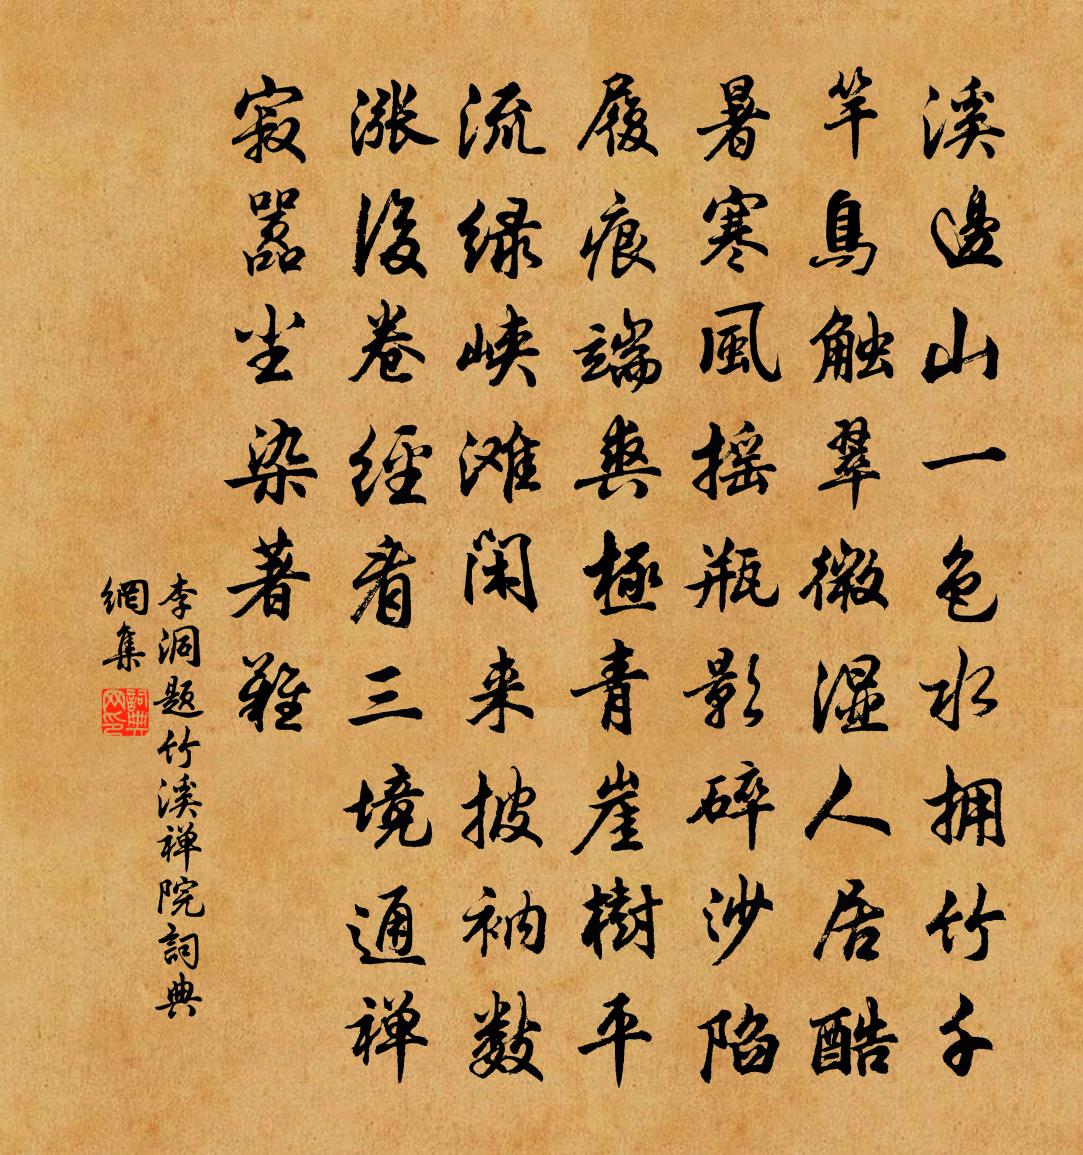 溪邊山一色水拥竹千
竿鳥触翠微湿人居酷
暑寒風摇瓶影碎沙陷
履痕端爽極青崖樹平
流绿峡滩闲来披衲数
漲後卷經看三境通禅
寂嚣尘染著難
李洞题竹溪禅院詞典
網集
詞典网印